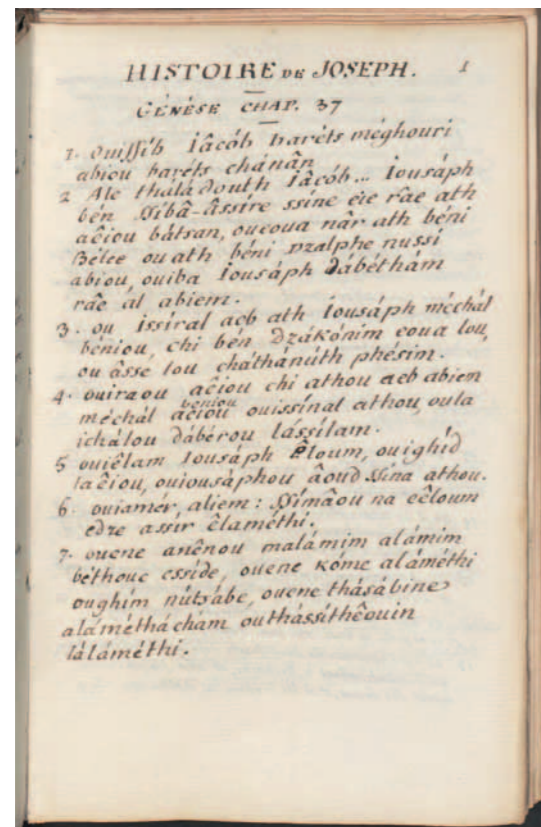 HISTOIRE DE JOSEPH. 1
GÉNÈSE CHAP. 37
1. Ouissib Iâcób baréts méghouri
abiou baréts chánân
2 Ale tháládouth Iâcób... Iousáph
bén Ssibâ-âssire ssine éie râe ath
aêiou bátsan, oueoua nâr ath béni
Bélee ou ath béni nzalphe nussi
abiou, ouiba Iousáph dábéthám
râe ál abiem.
3. ou issiral aeb ath iousáph méchál
béniou, chi bén Dzákónim eoua lou,
ou âsse lou cháthánúth phésim.
4. ouiraou aêiou chi athou aeb abiem
méchál aêiou beniou ouissínat athou, oula
ichálou dábérou lássílam.
5 ouiêlam Iousáph Êloum, ouighíd
laêiou, ouiousáphou âoud Ssina athou.
6. ouiamér, aliem: Ssímâou na eêloum
edze assir êlaméthi.
7. ouene anênou malámim alámim
béthouc esside, ouene kóme alaméthi
oughím nútsábe, ouene thásábine
alámétháchám outhássíthêouin
láláméthi.